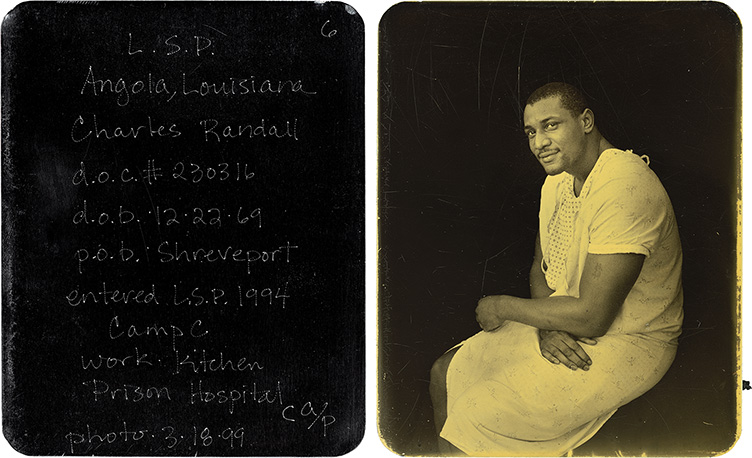 6
L.S.P.
Angola, Louisiana
Charles Randall
d.o.c.# 230316
d.o.b. 12·22·69
p.o.b. Shreveport
entered L.S.P. 1994
Camp C
work· Kitchen
Prison Hospital
c a/p
photo·3·18·99